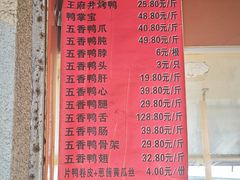 王府井烤鸭 25.80元/斤
鸭掌宝 48.80元/斤
五香鸭爪 40.80元/斤
五香鸭肫 49.80元/斤
五香鸭脖 6元/根
五香鸭头 3元/只
五香鸭肝 19.80元/斤
五香鸭心 39.80元/斤
五香鸭腿 29.80元/斤
五香鸭舌 128.80元/斤
五香鸭肠 39.80元/斤
五香鸭骨架 29.80元/斤
五香鸭翅 32.80元/斤
片鸭卷皮+葱酱黄瓜丝 4.00元/份